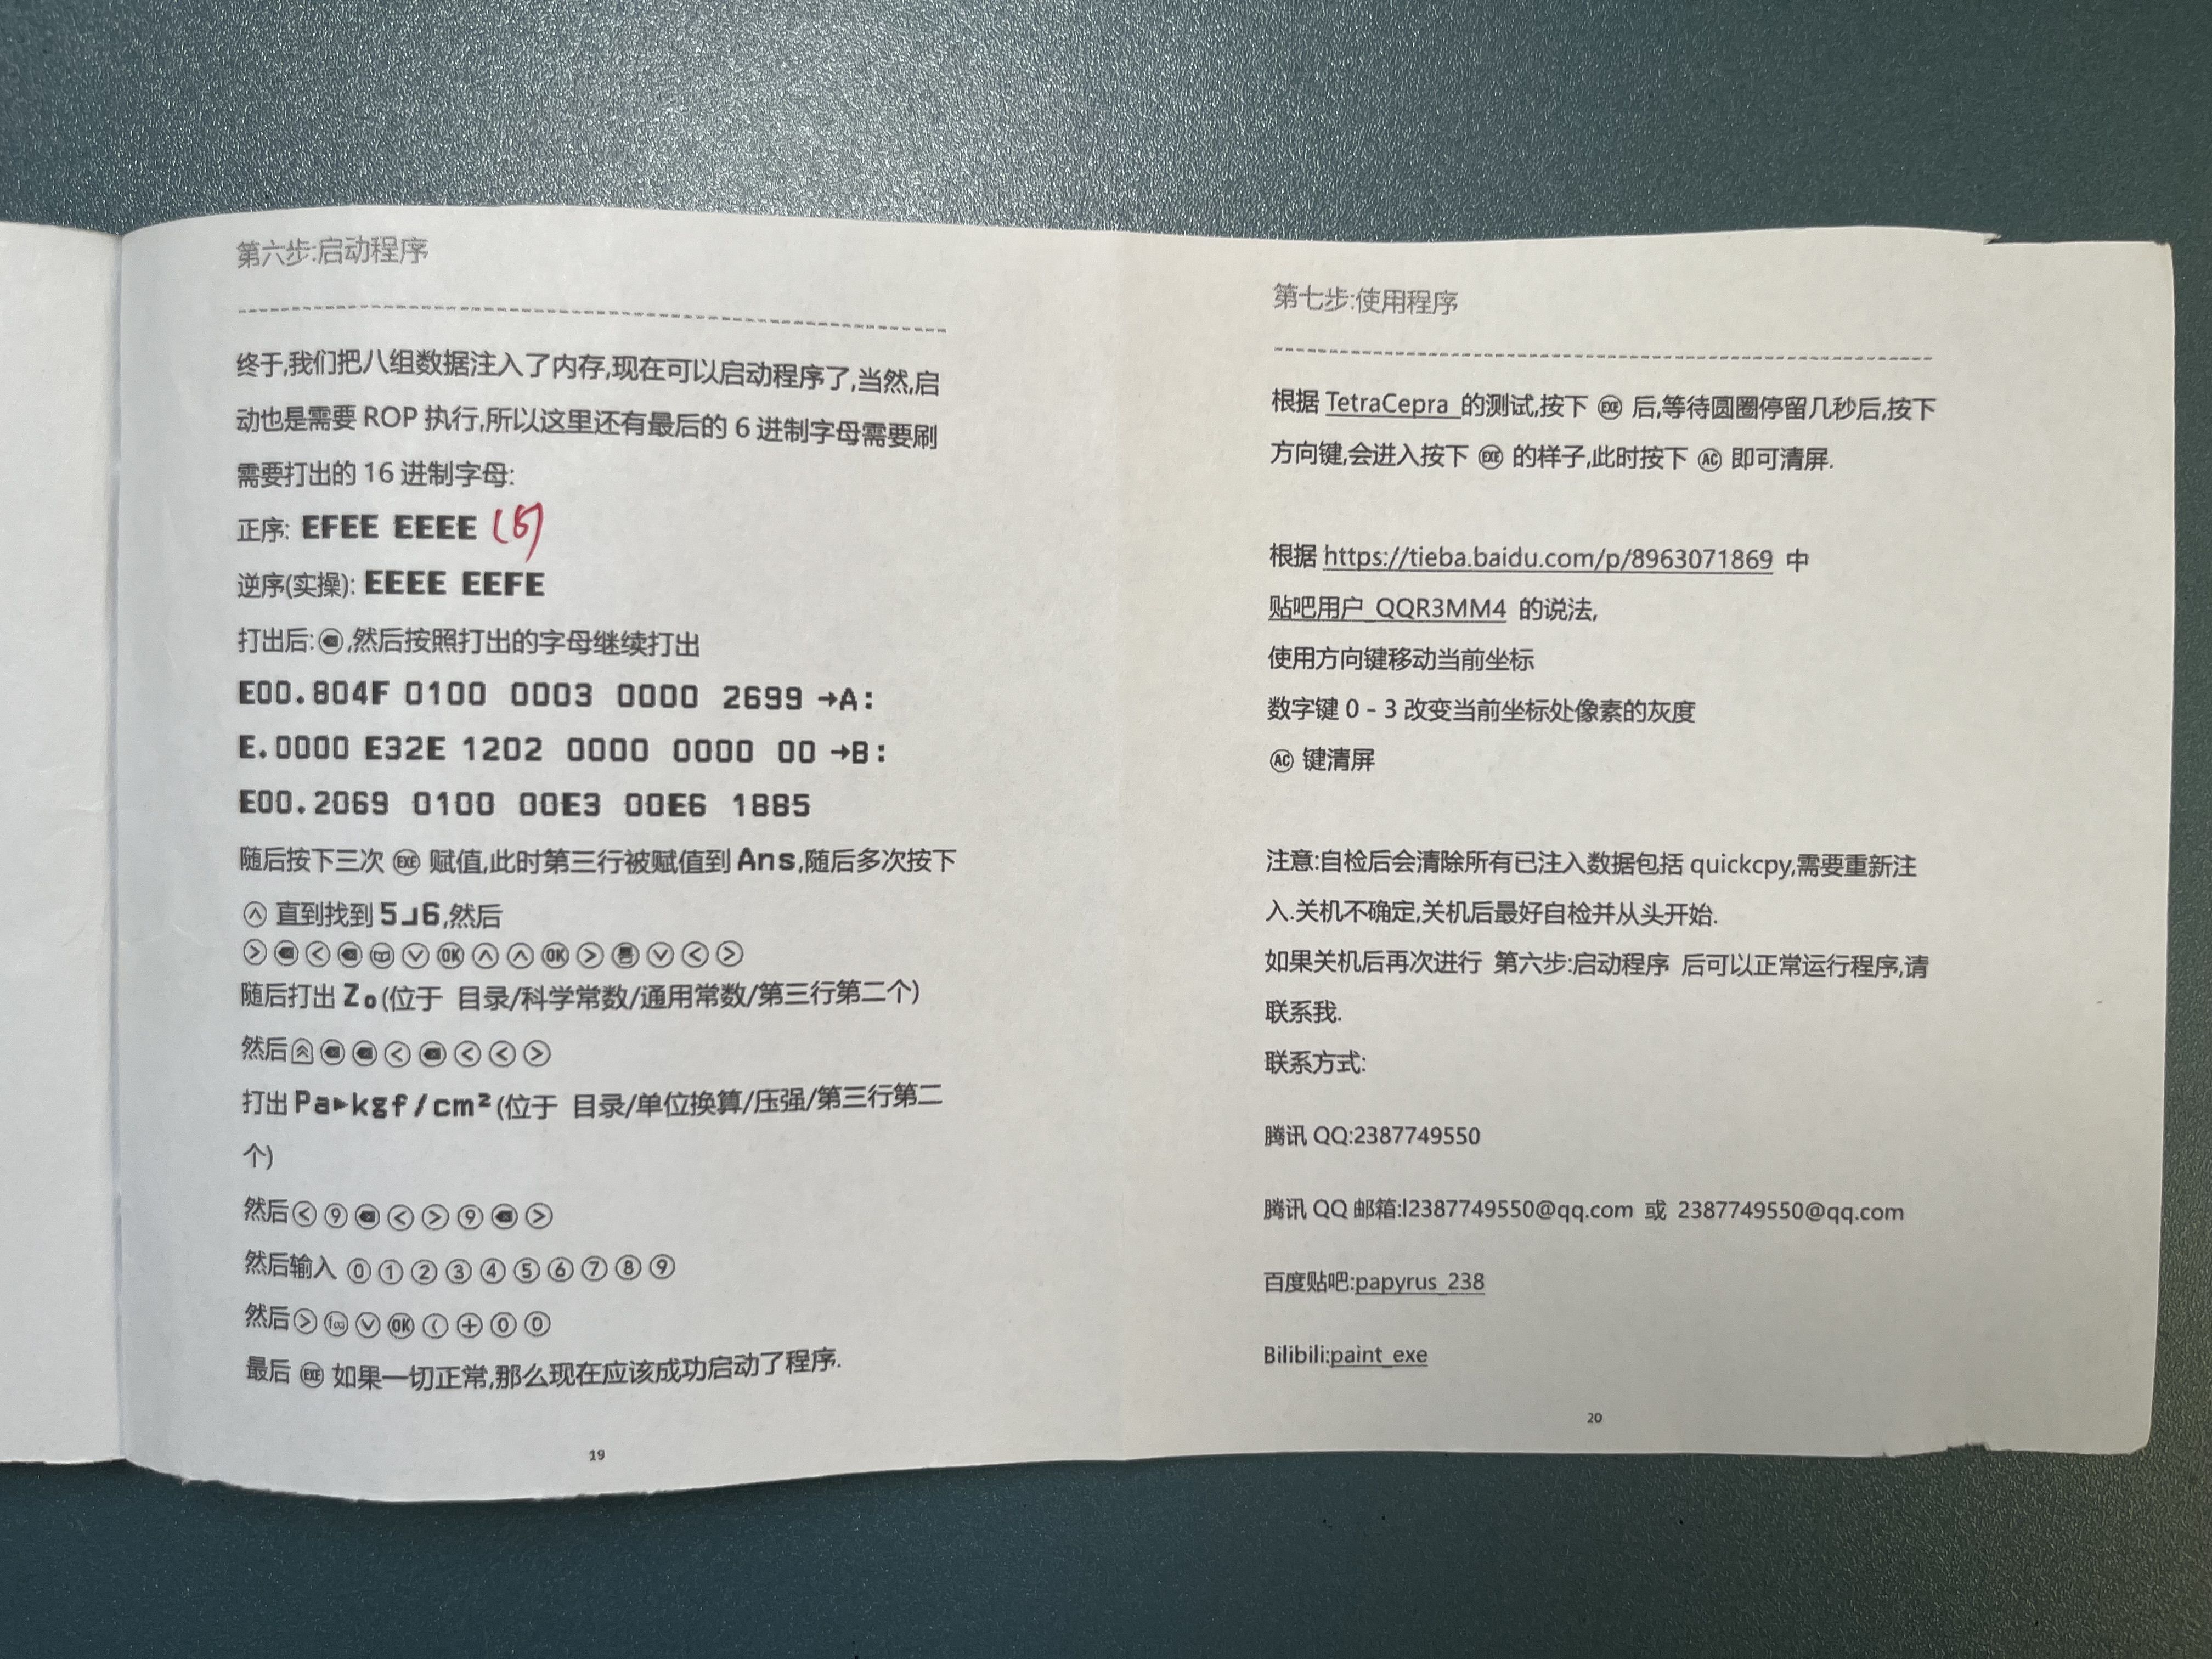 第六步:启动程序
终于,我们把八组数据注入了内存,现在可以启动程序了,当然,启
动也是需要 ROP 执行,所以这里还有最后的 6 进制字母需要刷
需要打出的 16 进制字母:
正序: EFEE EEEE (6)
逆序(实操): EEEE EEFE
打出后:⌫,然后按照打出的字母继续打出
E00.804F 0100 0003 0000 2699 →A:
E.0000 E32E 1202 0000 0000 00 →B:
E00.2069 0100 00E3 00E6 1885
随后按下三次 EXE 赋值,此时第三行被赋值到 Ans,随后多次按下
∧ 直到找到 5⌟6,然后
> ⌫ < ⌫ ∨ OK ∧ ∧ OK > ∨ < >
随后打出 Z₀(位于 目录/科学常数/通用常数/第三行第二个)
然后 ⌫ ⌫ < ⌫ < < >
打出 Pa▶kgf/cm²(位于 目录/单位换算/压强/第三行第二
个)
然后 < 9 ⌫ < > 9 ⌫ >
然后输入 0 1 2 3 4 5 6 7 8 9
然后 > f(x) ∨ OK ( + 0 0
最后 EXE 如果一切正常,那么现在应该成功启动了程序.
19
第七步:使用程序
根据 TetraCepra 的测试,按下 EXE 后,等待圆圈停留几秒后,按下
方向键,会进入按下 EXE 的样子,此时按下 AC 即可清屏.
根据 https://tieba.baidu.com/p/8963071869 中
贴吧用户_QQR3MM4 的说法,
使用方向键移动当前坐标
数字键 0 - 3 改变当前坐标处像素的灰度
AC 键清屏
注意:自检后会清除所有已注入数据包括 quickcpy,需要重新注
入.关机不确定,关机后最好自检并从头开始.
如果关机后再次进行 第六步:启动程序 后可以正常运行程序,请
联系我.
联系方式:
腾讯 QQ:2387749550
腾讯 QQ 邮箱:l2387749550@qq.com 或 2387749550@qq.com
百度贴吧:papyrus_238
Bilibili:paint_exe
20